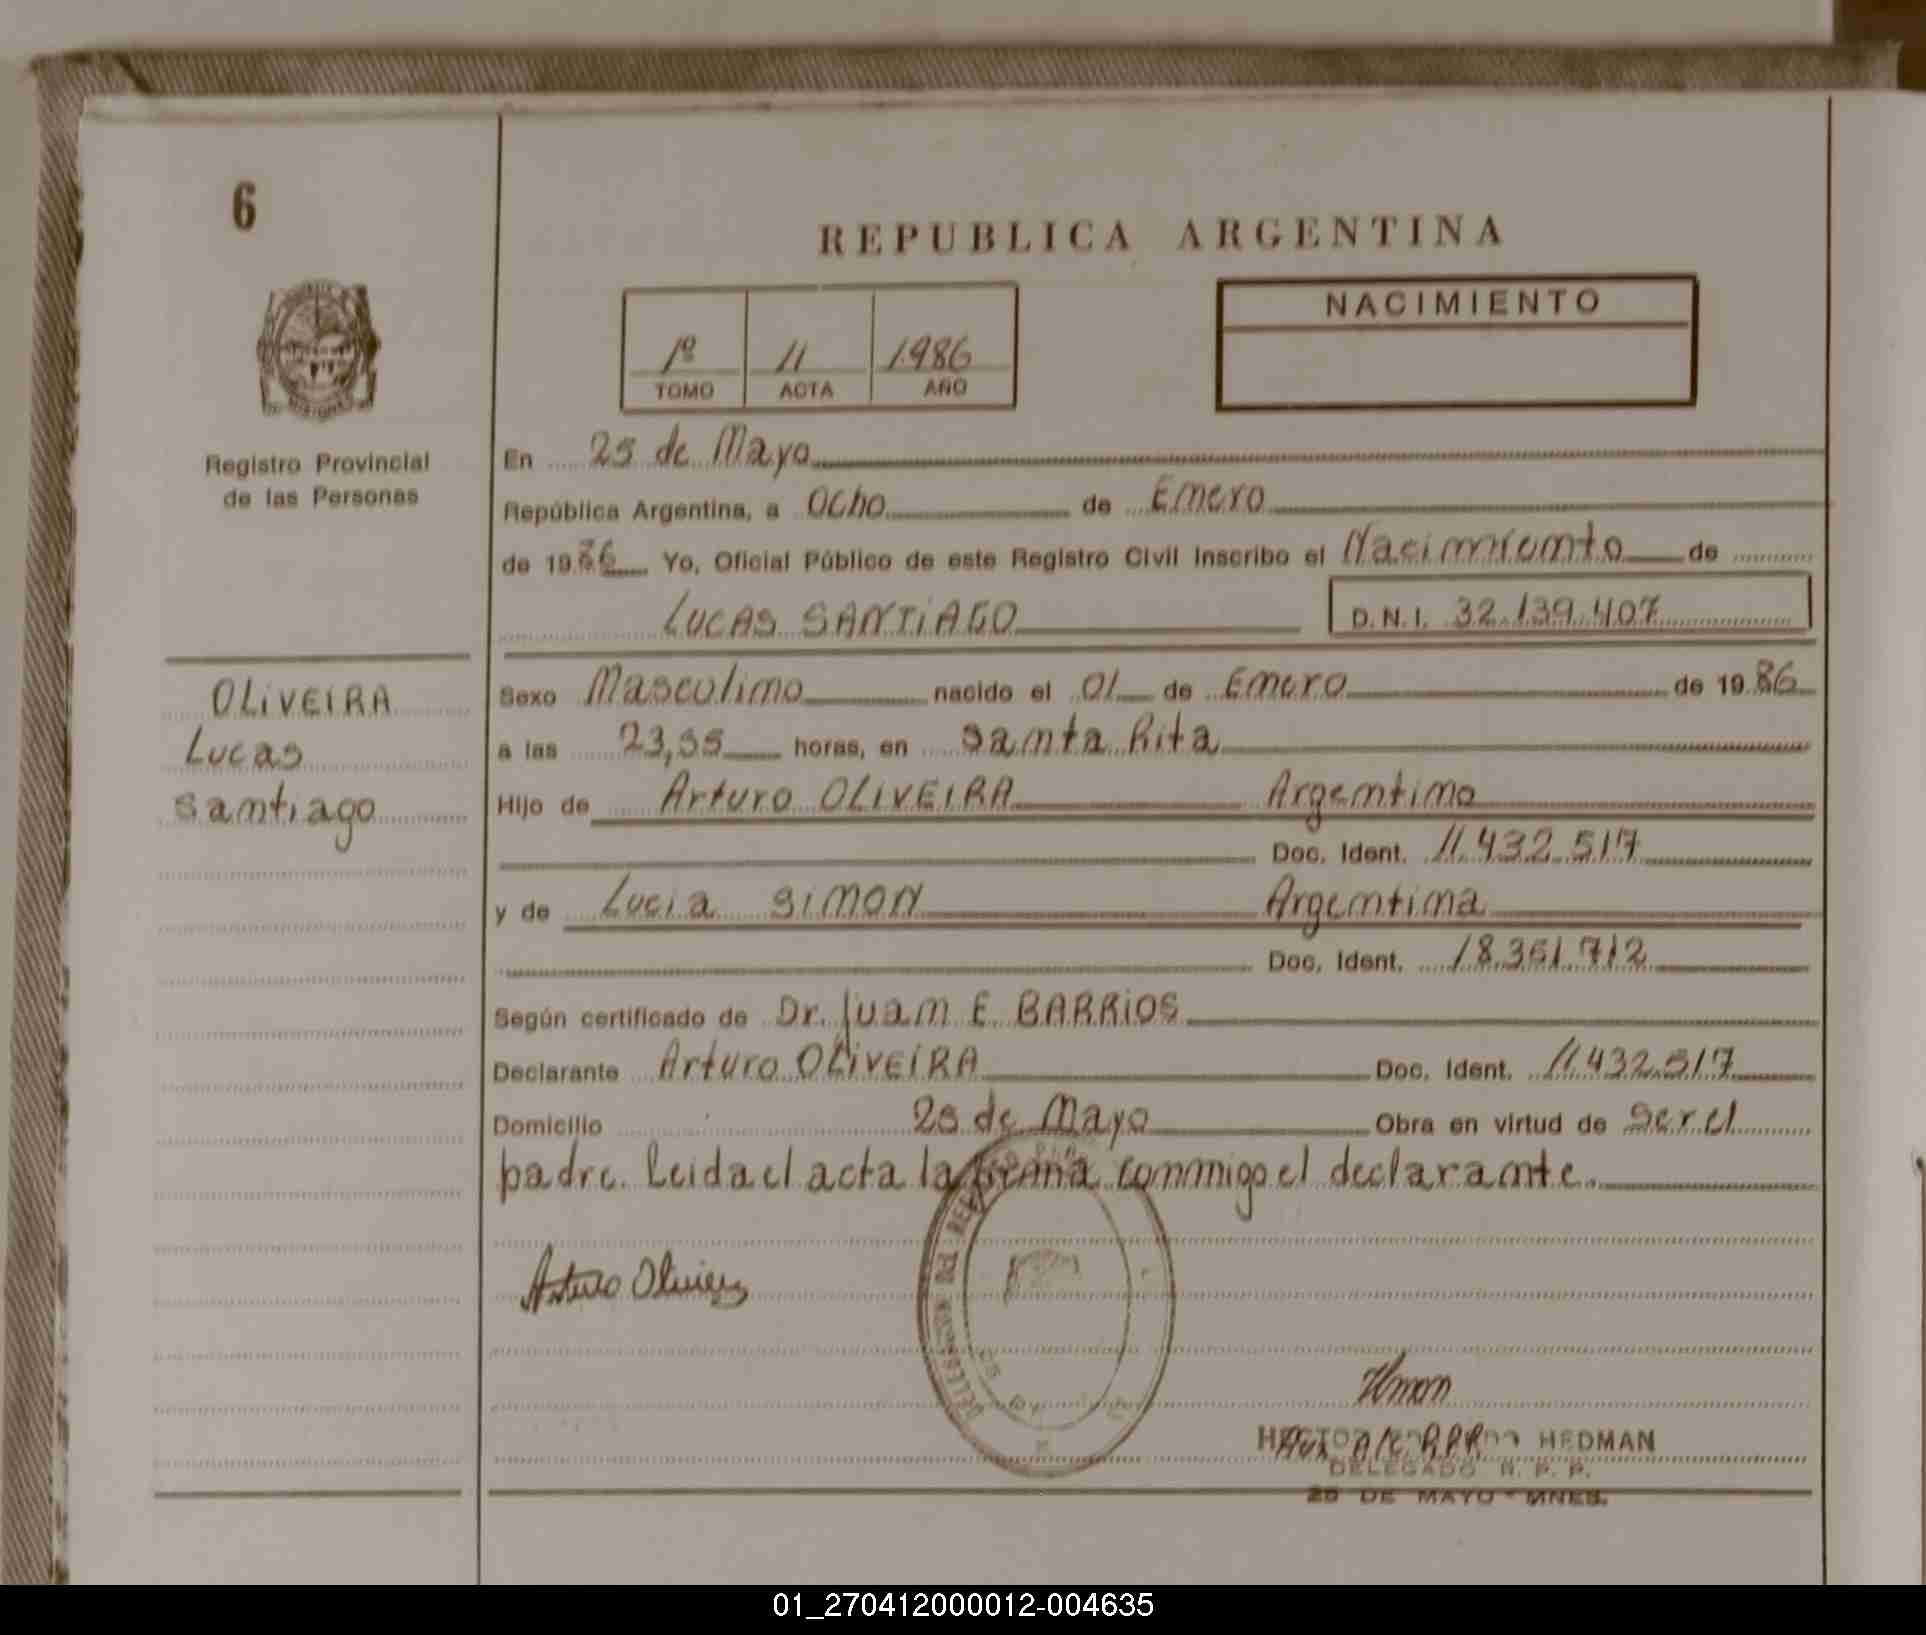 6
REPUBLICA ARGENTINA
NACIMIENTO
1º 11 1986
TOMO ACTA AÑO
Registro Provincial
de las Personas
En 25 de Mayo
República Argentina, a Ocho de Enero
de 1986 Yo, Oficial Público de este Registro Civil inscribo el Nacimiento de
LUCAS SANTIAGO D.N.I. 32.139.407
OLIVEIRA
Lucas
Santiago
Sexo Masculino nacido el 01 de Enero de 1986
a las 23,55 horas, en Santa Rita
Hijo de Arturo OLIVEIRA Argentino
Doc. Ident. 11.432.517
y de Lucia SIMON Argentina
Doc. Ident. 18.361.712
Según certificado de Dr. Juan E BARRIOS
Declarante Arturo OLIVEIRA Doc. Ident. 11.432.517
Domicilio 25 de Mayo Obra en virtud de ser el
padre. Leida el acta la firma conmigo el declarante.
Arturo Oliveira
HECTOR HEDMAN
Aux A/C R.P.P.
DELEGADO R. P. P.
25 DE MAYO - MNES.
01_270412000012-004635